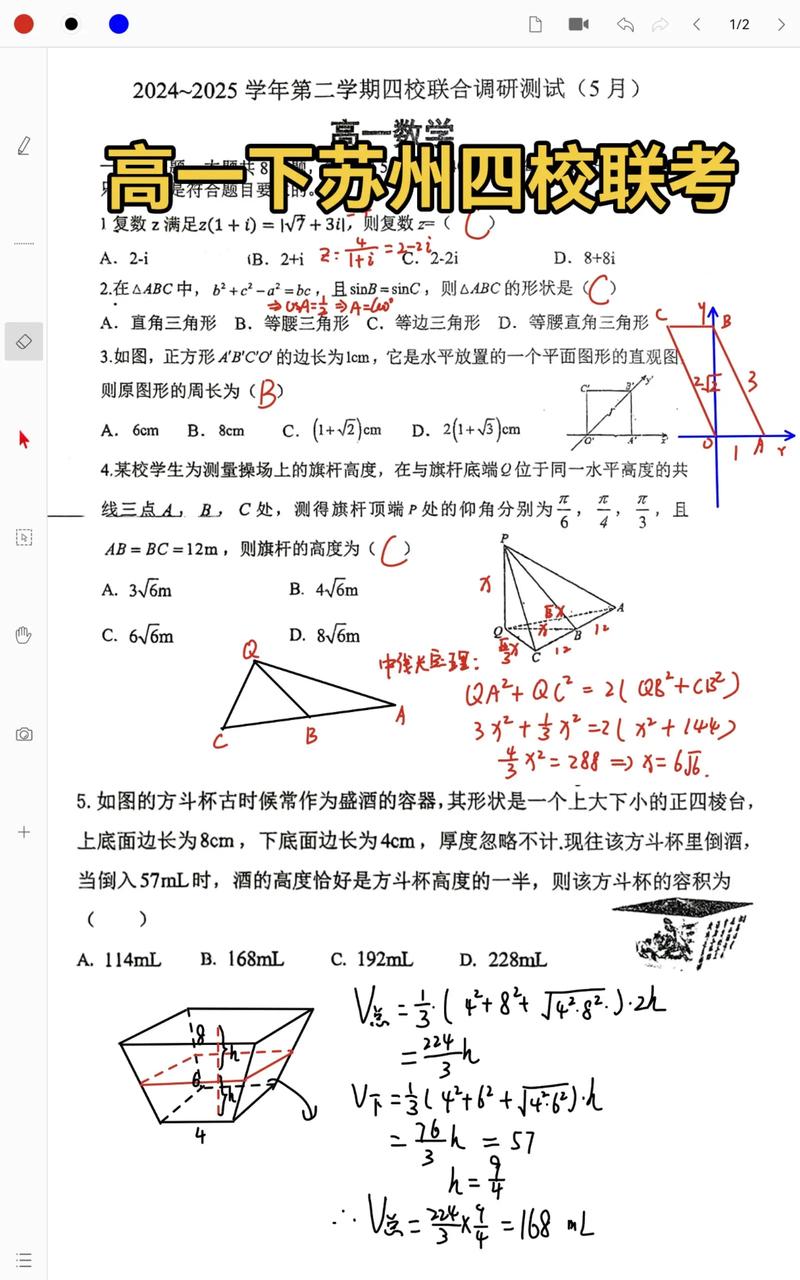 1/2
2024~2025 学年第二学期四校联合调研测试（5 月）
高一 数学
高一下苏州四校联考
是符合题目要
1 复数 z 满足z(1 + i) = |√7 + 3i|，则复数 z=（ C ）
A．2-i B．2+i C．2-2i D．8+8i
z = 4/(1+i) = 2-2i
2.在△ABC 中，b²+c²−a²=bc，且sinB=sinC，则△ABC 的形状是（ C ）
⇒ cosA=1/2 ⇒ A=60°
A．直角三角形 B．等腰三角形 C．等边三角形 D．等腰直角三角形
3.如图，正方形 A'B'C'O' 的边长为1cm，它是水平放置的一个平面图形的直观图
则原图形的周长为（ B ）
A．6cm B．8cm C．(1+√2)cm D．2(1+√3)cm
C' B' y'
O' A' x'
C y B
2√2 3
O 1 A x
4.某校学生为测量操场上的旗杆高度，在与旗杆底端Q位于同一水平高度的共
线三点 A，B，C 处，测得旗杆顶端 P 处的仰角分别为 π/6，π/4，π/3，且
AB=BC=12m，则旗杆的高度为（ C ）
A．3√6m B．4√6m
C．6√6m D．8√6m
P
x √3x A
Q x B 12
√3/3x C 12
Q
C B A
中线长定理：
QA²+QC²=2(QB²+CB²)
3x²+1/3x²=2(x²+144)
4/3x²=288 ⇒ x=6√6.
5. 如图的方斗杯古时候常作为盛酒的容器，其形状是一个上大下小的正四棱台，
上底面边长为8cm，下底面边长为4cm，厚度忽略不计.现往该方斗杯里倒酒，
当倒入57mL时，酒的高度恰好是方斗杯高度的一半，则该方斗杯的容积为
（ ）
A．114mL B．168mL C．192mL D．228mL
8 h
6 h
4
V总=1/3·(4²+8²+√(4²·8²))·2h
=224/3 h
V下=1/3(4²+6²+√(4²·6²))·h
=76/3 h=57
h=9/4
∴V总=224/3×9/4=168 mL